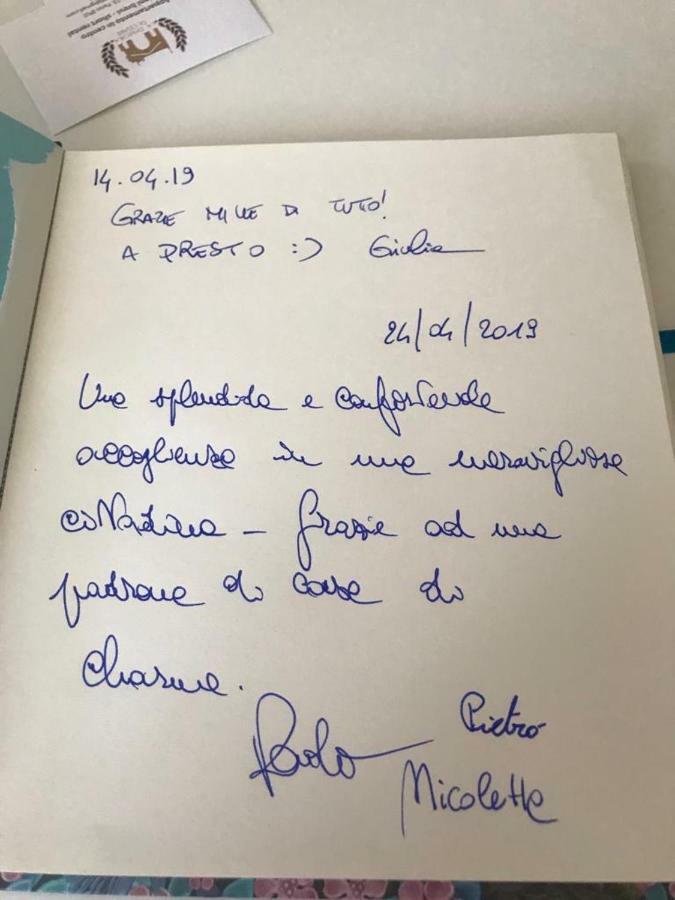 Appartamento in centro
short rental
14.04.19
GRAZIE MILLE DI TUTO!
A PRESTO :) Giulia
24/04/2019
Una splendida e confortevole
accoglienza in una meravigliosa
cittadina - Grazie ad una
padrona di casa di
charme.
Paolo
Pietro
Nicoletta